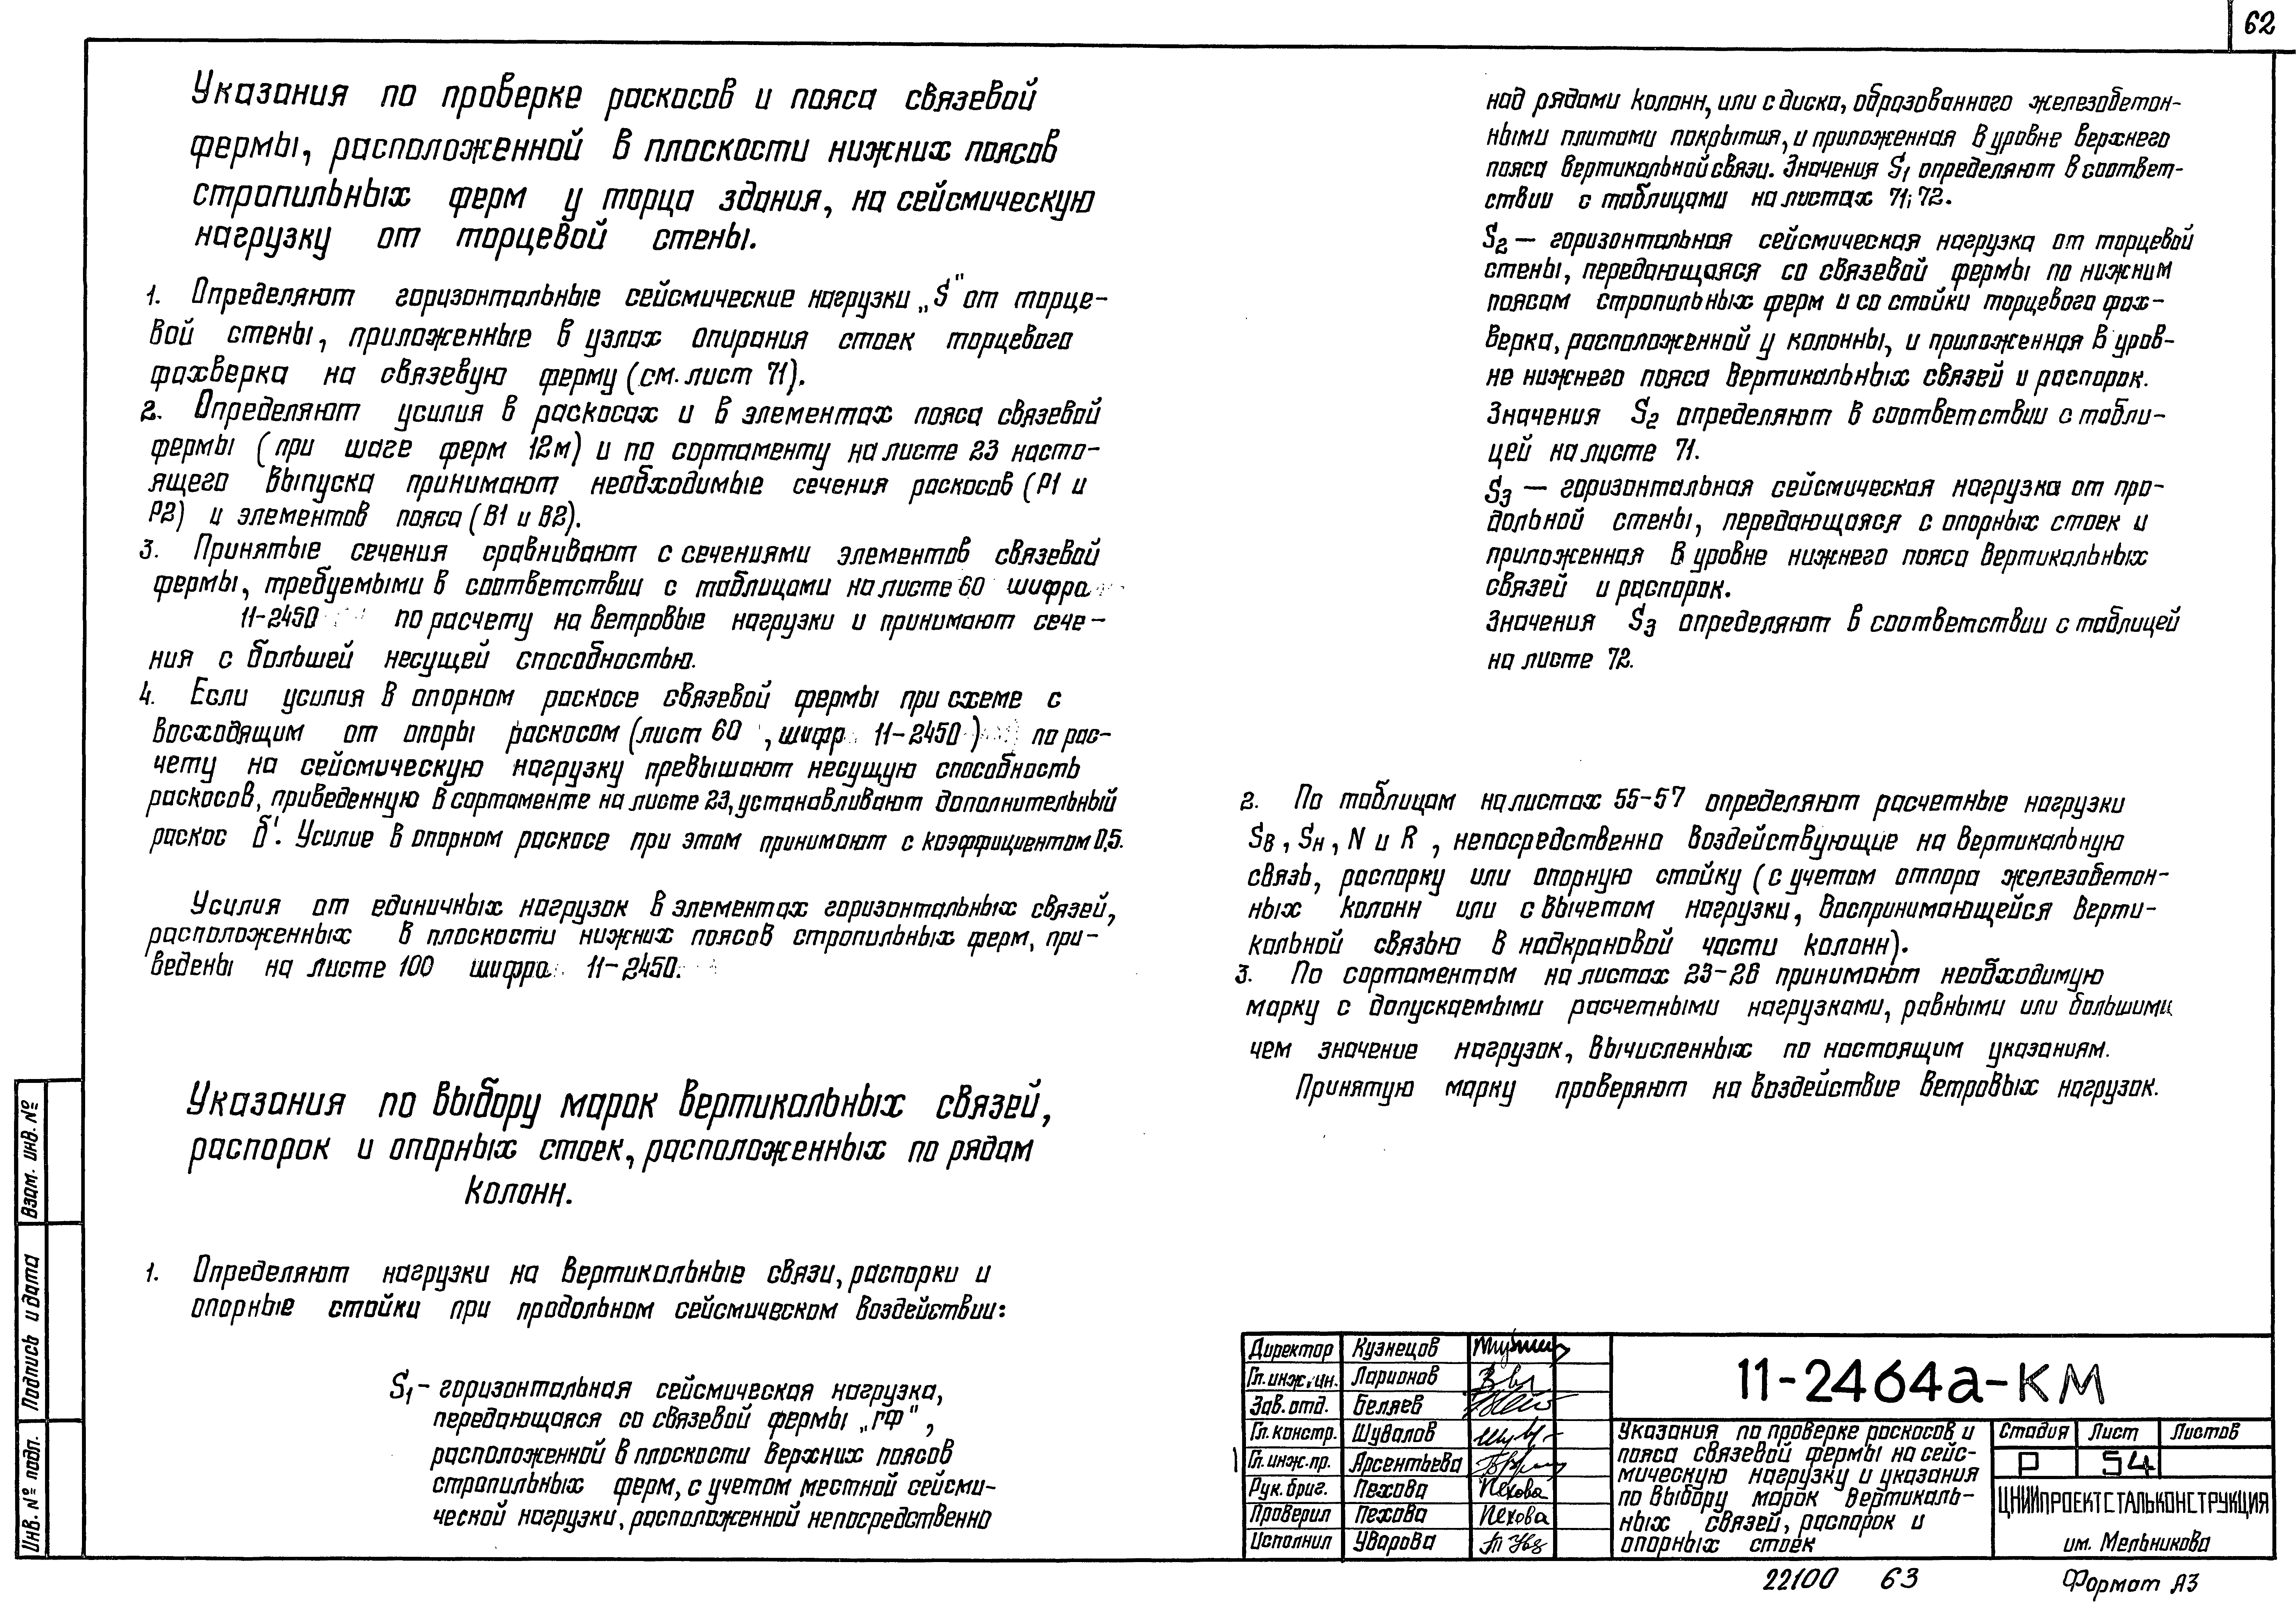 62
Указания по проверке раскосов и пояса связевой
фермы, расположенной в плоскости нижних поясов
стропильных ферм у торца здания, на сейсмическую
нагрузку от торцевой стены.
1. Определяют горизонтальные сейсмические нагрузки „S" от торце-
вой стены, приложенные в узлах опирания стоек торцевого
фахверка на связевую ферму (см. лист 71).
2. Определяют усилия в раскосах и в элементах пояса связевой
фермы (при шаге ферм 12м) и по сортаменту на листе 23 насто-
ящего выпуска принимают необходимые сечения раскосов (Р1 и
Р2) и элементов пояса (В1 и В2).
3. Принятые сечения сравнивают с сечениями элементов связевой
фермы, требуемыми в соответствии с таблицами на листе 60 шифра
11-2450 по расчету на ветровые нагрузки и принимают сече-
ния с большей несущей способностью.
4. Если усилия в опорном раскосе связевой фермы при схеме с
восходящим от опоры раскосом (лист 60, шифр 11-2450) по рас-
чету на сейсмическую нагрузку превышают несущую способность
раскосов, приведенную в сортаменте на листе 23, устанавливают дополнительный
раскос б'. Усилие в опорном раскосе при этом принимают с коэффициентом 0,5.
Усилия от единичных нагрузок в элементах горизонтальных связей,
расположенных в плоскости нижних поясов стропильных ферм, при-
ведены на листе 100 шифра 11-2450.
Указания по выбору марок вертикальных связей,
распорок и опорных стоек, расположенных по рядам
колонн.
1. Определяют нагрузки на вертикальные связи, распорки и
опорные стойки при продольном сейсмическом воздействии:
S1 – горизонтальная сейсмическая нагрузка,
передающаяся со связевой фермы „ГФ",
расположенной в плоскости верхних поясов
стропильных ферм, с учетом местной сейсми-
ческой нагрузки, расположенной непосредственно
над рядами колонн, или с диска, образованного железобетон-
ными плитами покрытия, и приложенная в уровне верхнего
пояса вертикальной связи. Значения S1 определяют в соответ-
ствии с таблицами на листах 71; 72.
S2 — горизонтальная сейсмическая нагрузка от торцевой
стены, передающаяся со связевой фермы по нижним
поясам стропильных ферм и со стойки торцевого фах-
верка, расположенной у колонны, и приложенная в уров-
не нижнего пояса вертикальных связей и распорок.
Значения S2 определяют в соответствии с табли-
цей на листе 71.
S3 — горизонтальная сейсмическая нагрузка от про-
дольной стены, передающаяся с опорных стоек и
приложенная в уровне нижнего пояса вертикальных
связей и распорок.
Значения S3 определяют в соответствии с таблицей
на листе 72.
2. По таблицам на листах 55-57 определяют расчетные нагрузки
Sв, Sн, N и R, непосредственно воздействующие на вертикальную
связь, распорку или опорную стойку (с учетом отпора железобетон-
ных колонн или с вычетом нагрузки, воспринимающейся верти-
кальной связью в надкрановой части колонн).
3. По сортаментам на листах 23-26 принимают необходимую
марку с допускаемыми расчетными нагрузками, равными или большими
чем значение нагрузок, вычисленных по настоящим указаниям.
Принятую марку проверяют на воздействие ветровых нагрузок.
Взам. инв. №
Подпись и дата
Инв. № подл.
Директор Кузнецов
Гл. инж. ин. Ларионов
Зав. отд. Беляев
Гл. констр. Шувалов
Гл. инж. пр. Арсентьева
Рук. бриг. Пехова Пехова
Проверил Пехова Пехова
Исполнил Уварова
11-2464а-КМ
Указания по проверке раскосов и
пояса связевой фермы на сейс-
мическую нагрузку и указания
по выбору марок вертикаль-
ных связей, распорок и
опорных стоек
Стадия Лист Листов
Р 54
ЦНИИПРОЕКТСТАЛЬКОНСТРУКЦИЯ
им. Мельникова
22100 63
Формат А3